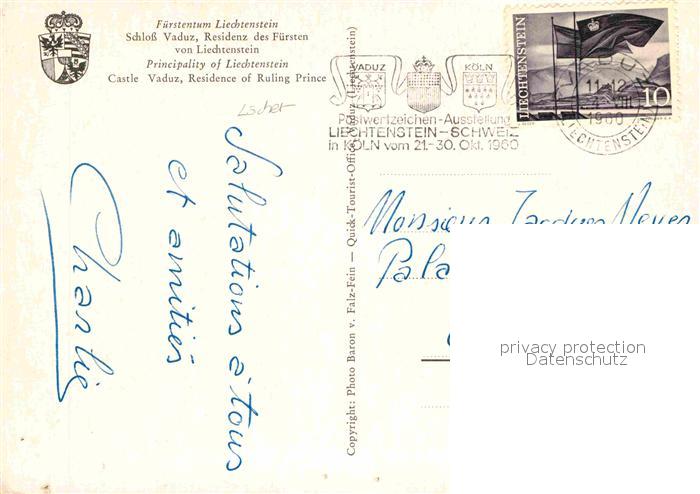 Fürstentum Liechtenstein
Schloß Vaduz, Residenz des Fürsten
von Liechtenstein
Principality of Liechtenstein
Castle Vaduz, Residence of Ruling Prince
Lscher
Salutations à tous
et amitiés
Charlie
Copyright: Photo Baron v. Falz-Fein — Quick-Tourist-Office, Vaduz (Liechtenstein)
VADUZ
KÖLN
Postwertzeichen-Ausstellung
LIECHTENSTEIN-SCHWEIZ
in KÖLN vom 21.-30. Okt. 1960
LIECHTENSTEIN
10
VADUZ
11-12
1960
LIECHTENSTEIN
Monsieur Jacques Meyer
Pala
privacy protection
Datenschutz